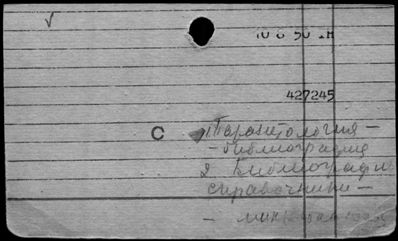 427245
С 1 Паразитология —
— библиография
2 Библиографи
справочники —
—